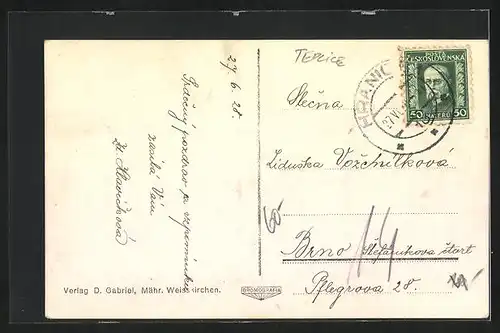 27. 6. 28.
Srdečný pozdrav a vzpomínku
zasílá Vám
Zd. Hlavičková
Verlag D. Gabriel, Mähr. Weisskirchen.
BROMOGRAFIA
TEPLICE
POŠTA
ČESKOSLOVENSKÁ
50 HALÉŘŮ 50
HRANIC
Slečna
Liduška Vozchilková
60-
Brno Štefanikova čtvrt
Pflegrova 28.